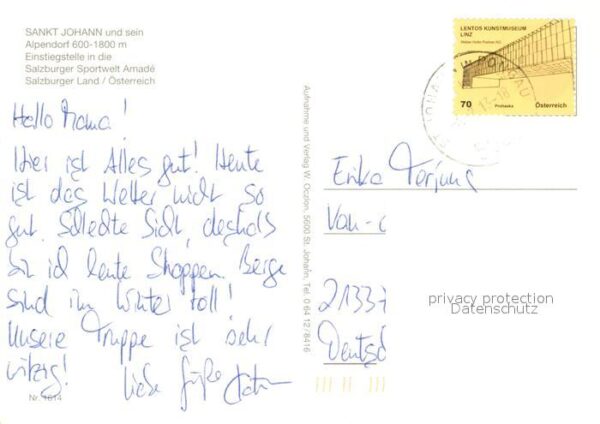 SANKT JOHANN und sein
Alpendorf 600-1800 m
Einstiegstelle in die
Salzburger Sportwelt Amadé
Salzburger Land / Österreich
LENTOS KUNSTMUSEUM
LINZ
70 Österreich
Hallo Mama!
Hier ist Alles gut! Heute
ist das Wetter nicht so
gut. Schlechte Sicht, deshalb
bin ich heute Shoppen. Berge
sind im Winter toll!
Unsere Truppe ist sehr
witzig!
Liebe Grüße
Nr. 1614
Aufnahme und Verlag W. 5600 St. Johann, Tel. 0 64 12-78416
Erika
Von-
21337
Deutsc
privacy protection
Datenschutz